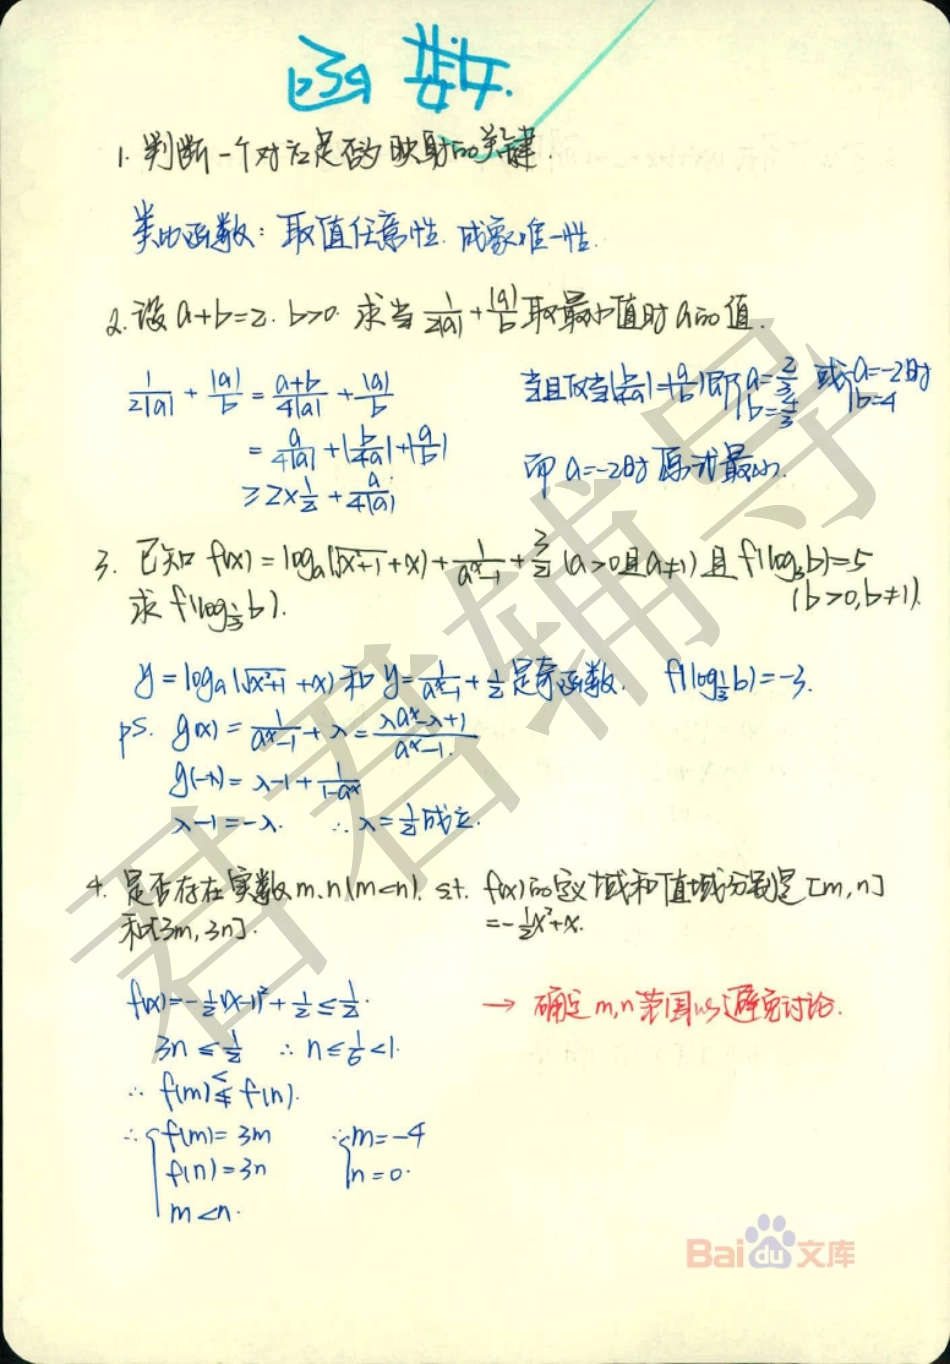 函数.
1. 判断一个对应是否为映射的关键.
类比函数: 取值任意性. 成象唯一性.
2. 设 a+b=2. b>0. 求当 1/(2|a|) + |a|/b 取最小值时 a的值.
1/(2|a|) + |a|/b = (a+b)/(4|a|) + |a|/b
= a/(4|a|) + |b/(4a)| + |a/b|
≥ 2×1/2 + a/(4|a|)
当且仅当 |b/(4a)| = |a/b| 即 { a=2/3 b=4/3 或 { a=-2 b=4 时
而 a=-2时 原式最小.
3. 已知 f(x) = log_a(√(x²+1)+x) + 1/(a^x-1) + 3/2 (a>0且a≠1) 且 f(log_3 b)=5
(b>0, b≠1).
求 f(log_{1/3} b).
y = log_a(√(x²+1)+x) 和 y = 1/(a^x-1) + 1/2 是奇函数. f(log_{1/3} b) = -3.
ps. g(x) = 1/(a^x-1) + λ = (λa^x-λ+1)/(a^x-1).
g(-x) = λ-1 + 1/(1-a^x)
λ-1 = -λ. ∴ λ = 1/2 成立.
4. 是否存在实数 m、n (m<n). s.t. f(x)的定义域和值域分别是 [m, n]
= -1/2x²+x.
和[3m, 3n].
f(x) = -1/2(x-1)² + 1/2 ≤ 1/2.
→ 确定 m,n 范围以避免讨论.
3n ≤ 1/2 ∴ n ≤ 1/6 < 1.
∴ f(m) < f(n).
∴ { f(m) = 3m ∴ { m = -4
f(n) = 3n n = 0.
m < n.
君君辅导
Baidu文库